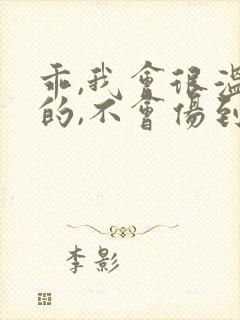 乖,我會很溫
的,不會傷到
李影